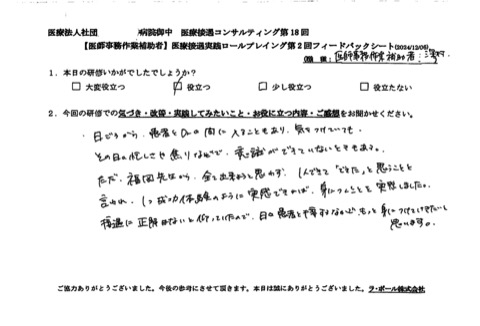 医療法人社団 病院御中 医療接遇コンサルティング第18回
【医師事務作業補助者】医療接遇実践ロールプレイング第2回フィードバックシート(2024/12/05)
医師事務作業補助者:
1.本日の研修いかがでしたでしょうか?
□大変役立つ □役立つ □少し役立つ □役立たない
2.今回の研修での気づき・改善・実践してみたいこと・お役に立つ内容・ご感想をお聞かせください。
日ごろから、患者とDrの間に入ることもあり、気をつけていても、
その日の忙しさや焦りなどで、意識ができていないときもある。
ただ、福岡先生から、全て出来ようと思わず、1人できて「できた」と思うことと
言われ、1つ成功体験のように実感できれば、身につくことを実感しました。
接遇に正解はないと仰っていたので、日々患者と接するなかでもっと身につけていきたいと
思います。
ご協力ありがとうございました。今後の参考にさせて頂きます。本日は誠にありがとうございました。ラ・ポール株式会社